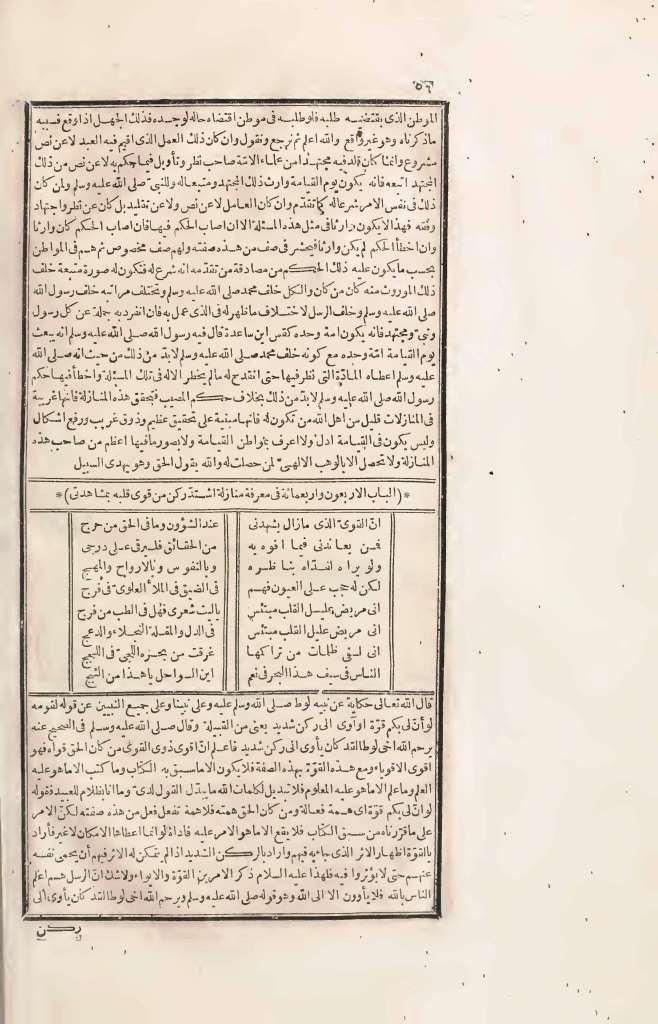 ٥٦
الموطن الذى يقتضيه طلبه فلو طلبه فى موطن اقتضاه حاله لوجده فذلك الجهل اذا وقع فيه
ما ذكرناه وهو غير واقع والله اعلم ثم نرجع ونقول وان كان ذلك العمل الذى اقيم فيه العبد لا عن نص
مشروع وانما كان قلد فيه مجتهدا من علماء الامة صاحب نظر وتأويل فيما حكم به لا عن نص من ذلك
المجتهد اتبعه فانه يكون يوم القيامة وارث ذلك المجتهد ومتبعا له وللنبى صلى الله عليه وسلم وان كان
ذلك فى نفس الامر شرعا له كما تقدم وان كان العامل لا عن نص ولا عن تقليد بل كان عن نظر واجتهاد
وفقه فهذا لا يكون وارثا فى مثل هذه المسئلة الا ان اصاب الحكم فيها فان اصاب الحكم كان وارثا
وان اخطأ الحكم لم يكن وارثا فيحشر فى صف من هذه صفته ولهم صف مخصوص ثم هم فى المواطن
بحسب ما يكون عليه ذلك الحكم من مصادفة من تقدمه انه شرع له فتكون له صورة متبعة خلف
ذلك الموروث منه كان من كان والكل خلف محمد صلى الله عليه وسلم وتختلف مراتبه خلف رسول الله
صلى الله عليه وسلم وخلف الرسل لاختلاف ما ظهر له فى الذى عمل به فان انفرد به جملة عن كل رسول
ونبى ومجتهد فانه يكون امة وحده كقس ابن ساعدة قال فيه رسول الله صلى الله عليه وسلم انه يبعث
يوم القيامة امة وحده مع كونه خلف محمد صلى الله عليه وسلم لا بد من ذلك من حيث انه صلى الله
عليه وسلم اعطاه المادة التى نظر فيها حتى انقدح له ما لم يخطر الا له فى تلك المسئلة واخطأ فيها حكم
رسول الله صلى الله عليه وسلم لا بد من ذلك بخلاف حكم المصيب فتحقق هذه المنازلة فانها غريبة
فى المنازلات قليل من اهل الله من تكون له فانها مبنية على تحقيق عظيم وذوق غريب ورفع اشكال
وليس يكون فى القيامة ادل ولا اعرف بمواطن القيامة ولا بصور ما فيها اعظم من صاحب هذه
المنازلة ولا تحصل الا بالوهب الالهى لمن حصلت له والله يقول الحق وهو يهدى السبيل
*(الباب الاربعون واربعمائة فى معرفة منازلة اشتد ركن من قوى قلبه بمشاهدتى)*
انّ القوىّ الذى مازال يشهدنى عند الشؤون وما فى الحق من حرج
فمن يعاندنى فيما افوه به من الحقائق فليرقى على درجى
ولو يراه افتداه بناظره وبالنفوس وبالارواح والمهج
لكن له حجب على العيون فهم فى الضيق فى الملأ العلوى فى فرج
انى مريض عليل القلب مبتئس ياليت شعرى فهل فى الطب من فرج
انى مريض عليل القلب مبتئس فى الدل والمقلة النجلاء والدعج
انى لفى ظلمات من تراكمها غرقت من بحره اللجى فى اللجج
الناس فى سيف هذا البحر فى نعم اين السواحل يا هذا من الثبج
قال الله تعالى حكاية عن نبيه لوط صلى الله وسلم عليه وعلى نبينا وعلى جميع النبيين عن قوله لقومه
لو أن لى بكم قوة او آوى الى ركن شديد يعنى من القبيلة وقال صلى الله عليه وسلم فى الصحيح عنه
يرحم الله اخى لوطا لقد كان يأوى الى ركن شديد فاعلم انّ اقوى ذوى القوى من كان الحق قواه فهو
اقوى الاقوياء ومع هذه القوة بهذه الصفة فلا يكون الا ما سبق به الكتاب وما كتب الا ما هو عليه
العلم وما علم الا ما هو عليه المعلوم فلا تبديل لكلمات الله ما يبدل القول لدىّ وما انا بظلام للعبيد فقوله
لو انّ لى بكم قوة اى همة فعالة ومن كان الحق همته فلا همة تفعل فعل من هذه صفته لكن الامر
على ما قررناه من سبق الكتاب فلا يقع الا ما هو الامر عليه فاداة لو انما اعطاها الامكان لا غير فأراد
بالقوة اظهار الاثر الذى جاء به فيهم واراد بالركن الشديد اذا لم يتمكن له الاثر فيهم أن يحمى نفسه
عنهم حتى لا يؤثروا فيه فلهذا عليه السلام ذكر الامرين القوة والايواء ولا شك انّ الرسل هم اعلم
الناس بالله فلا يأوون الا الى الله وهو قوله صلى الله عليه وسلم يرحم الله اخى لوطا لقد كان يأوى الى
ركن